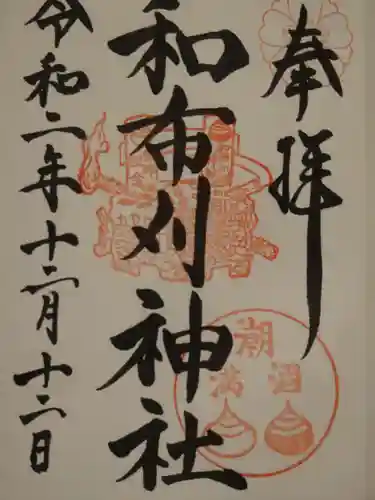 奉拝
和布刈神社
令和二年十二月十二日
潮
満 涸